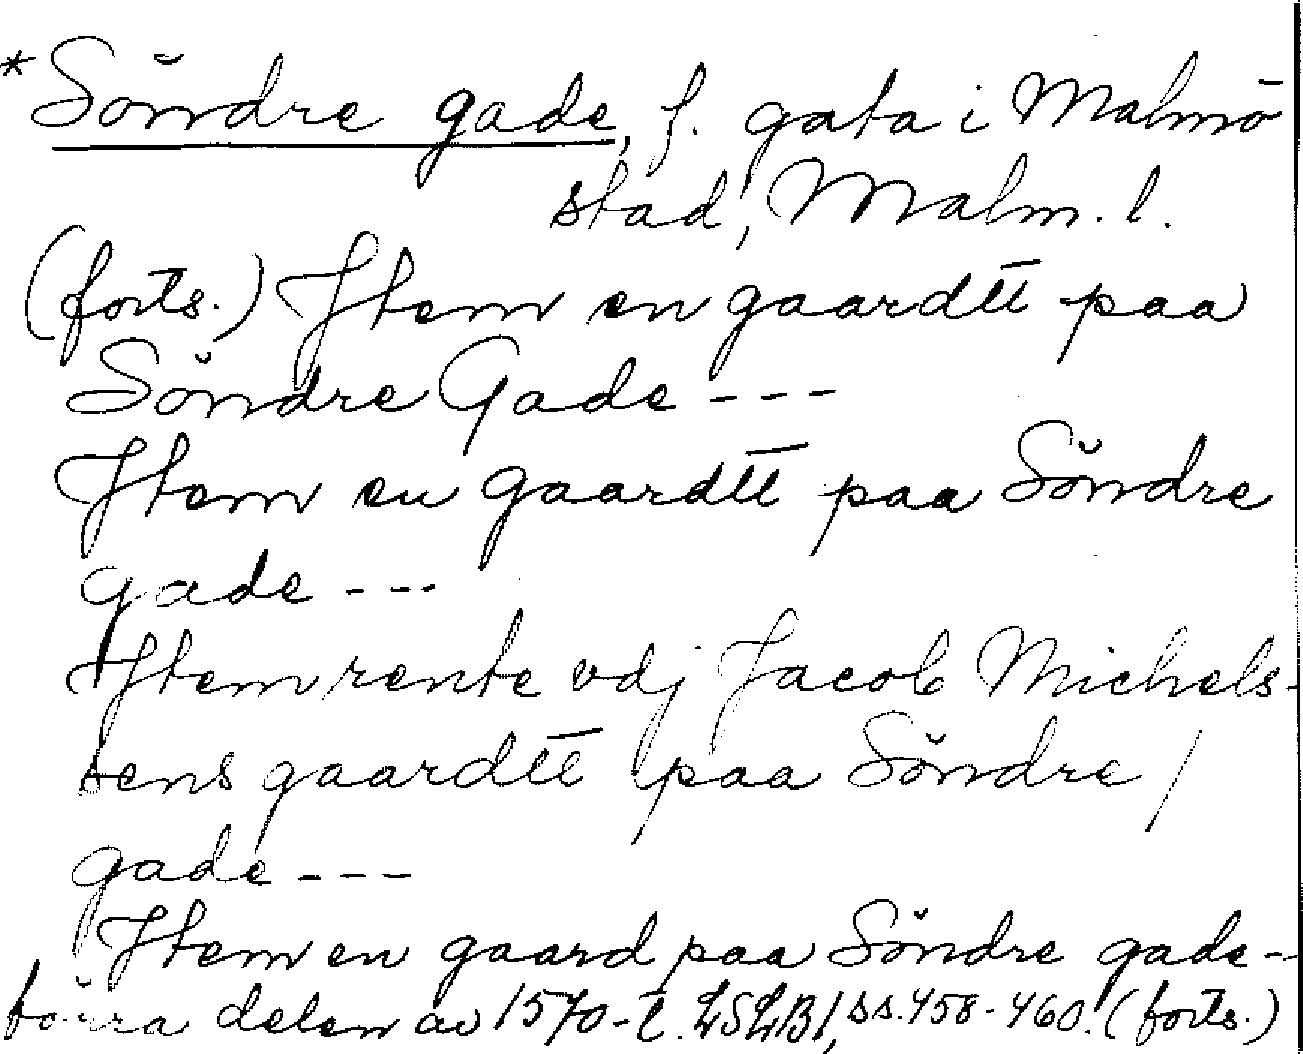 *Söndre gade, f. gata i Malmö
stad, Malm. l.
(forts.) Jtem en gaardtt paa
Söndre Gade ---
Jtem en gaardtt paa Söndre
gade ---
Jtem rente vdj Jacob Michels-
sens gaardtt paa Söndre /
gade ---
Jtem en gaard paa Söndre gade --
förra delen av 1570-t. LSLB1, ss. 458-460. (forts.)